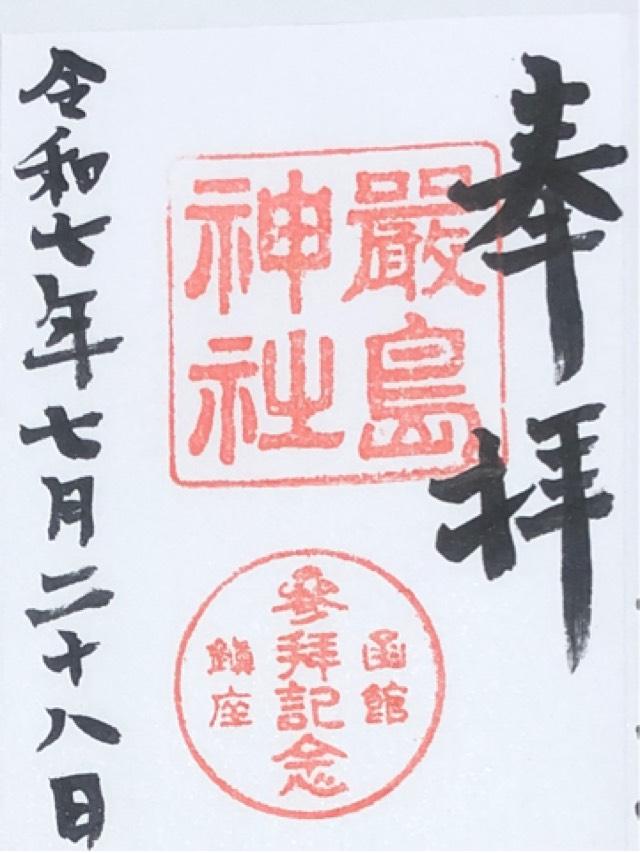 奉拝
嚴島
神社
函館
參拜記念
鎮座
令和七年七月二十八日